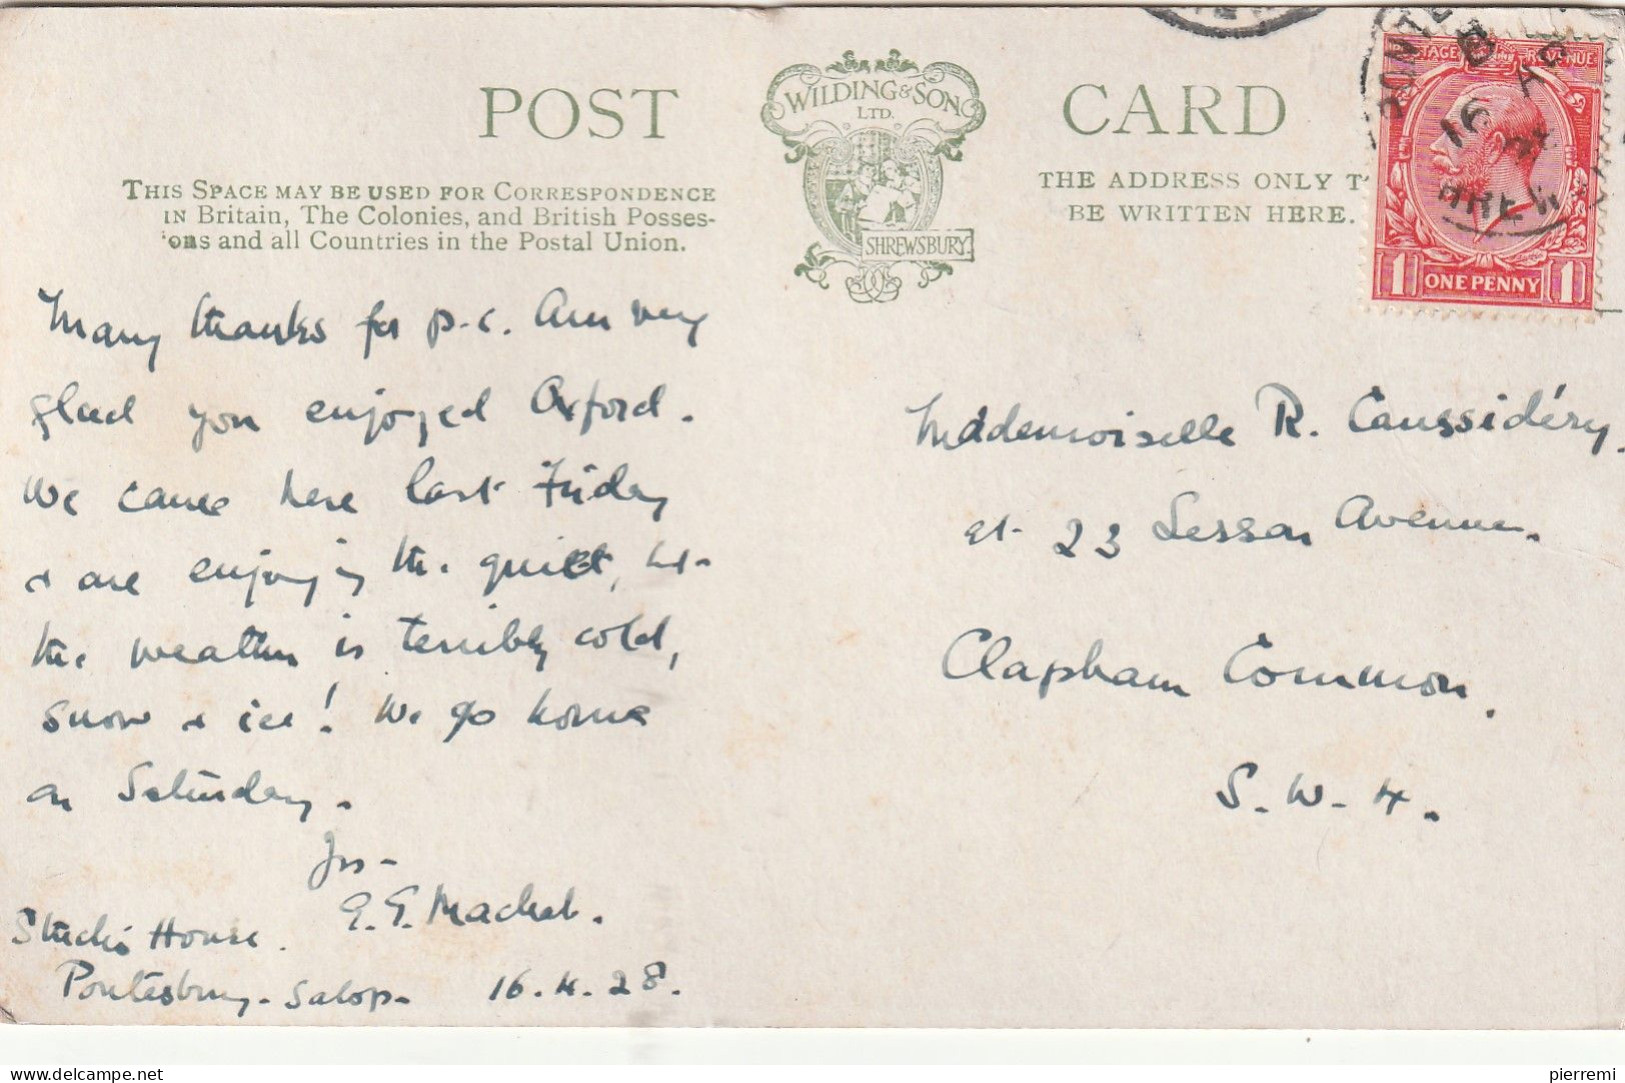 POST
CARD
WILDING & SON
LTD.
SHREWSBURY.
THIS SPACE MAY BE USED FOR CORRESPONDENCE
IN Britain, The Colonies, and British Posses-
ons and all Countries in the Postal Union.
THE ADDRESS ONLY T
BE WRITTEN HERE.
POSTAGE REVENUE
1 ONE PENNY 1
PONTE
16 AP
HREW
Many thanks for p.c. Am very
glad you enjoyed Oxford.
We came here last Friday
& are enjoying the quiet, but
the weather is terribly cold,
snow & ice! We go home
on Saturday.
Yrs -
Studio House.
Pontesbury - Salop - 16.4.28.
Mademoiselle R. Caussidéry.
at 23 Lessar Avenue.
Clapham Common.
S.W.4.
pierremi